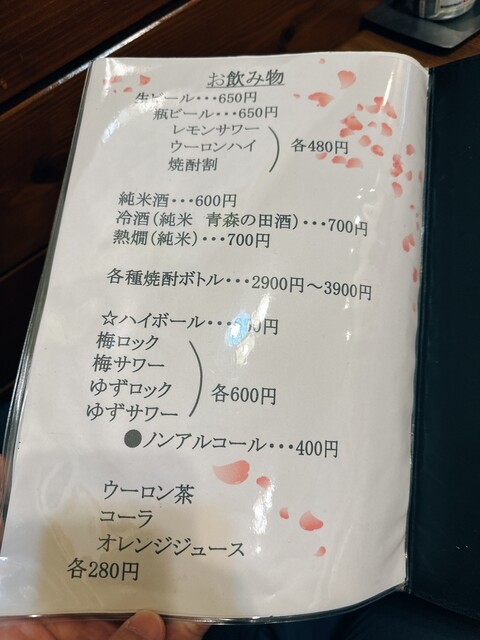 お飲み物
生ビール・・・650円
瓶ビール・・・650円
レモンサワー
ウーロンハイ
焼酎割
各480円
純米酒・・・600円
冷酒(純米 青森の田酒)・・・700円
熱燗(純米)・・・700円
各種焼酎ボトル・・・2900円～3900円
☆ハイボール・・・
梅ロック
梅サワー
ゆずロック
ゆずサワー
各600円
●ノンアルコール・・・400円
ウーロン茶
コーラ
オレンジジュース
各280円